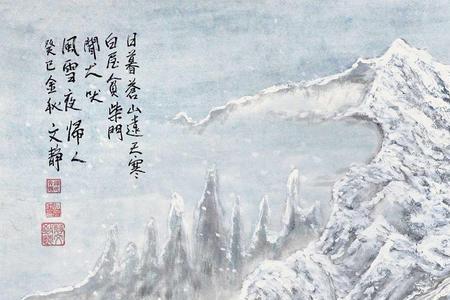 日暮蒼山遠天寒
白屋貧柴門
聞犬吠
風雪夜歸人
癸巳金秋文静